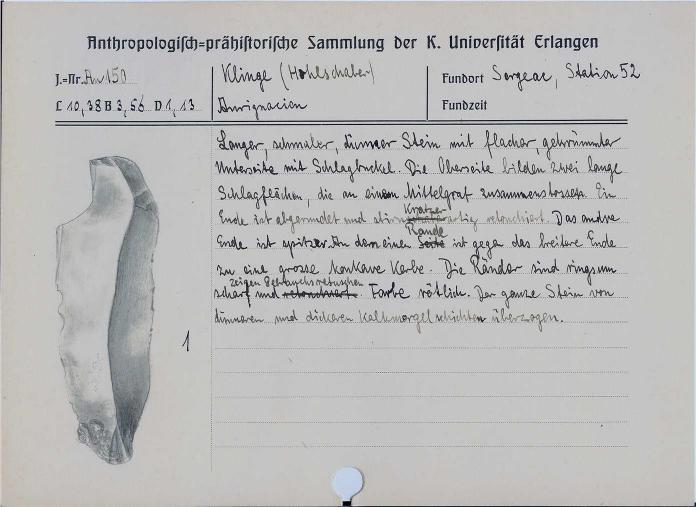 Anthropologisch=prähistorische Sammlung der K. Universität Erlangen
J.=Nr. Au 150
Klinge (Hohlschaber)
Fundort Sergeac, Station 52
L 10,38 B 3,56 D 1,13
Aurignacien
Fundzeit
Langer, schmaler, dünner Stein mit flacher, gekrümmter
Unterseite mit Schlagbuckel. Die Oberseite bilden zwei lange
Schlagflächen, die an einem Mittelgrat zusammenstossen. Ein
Kratzer
Ende ist abgerundet und artig retouchiert. Das andere
Rande
Ende ist spitzer. An dem einen Seite ist gegen das breitere Ende
zu eine grosse konkave Kerbe. Die Ränder sind ringsum
zeigen Gebrauchsretuschen
scharf und retouchiert. Farbe rötlich. Der ganze Stein von
dünneren und dickeren Kalkmergelschichten überzogen.
1